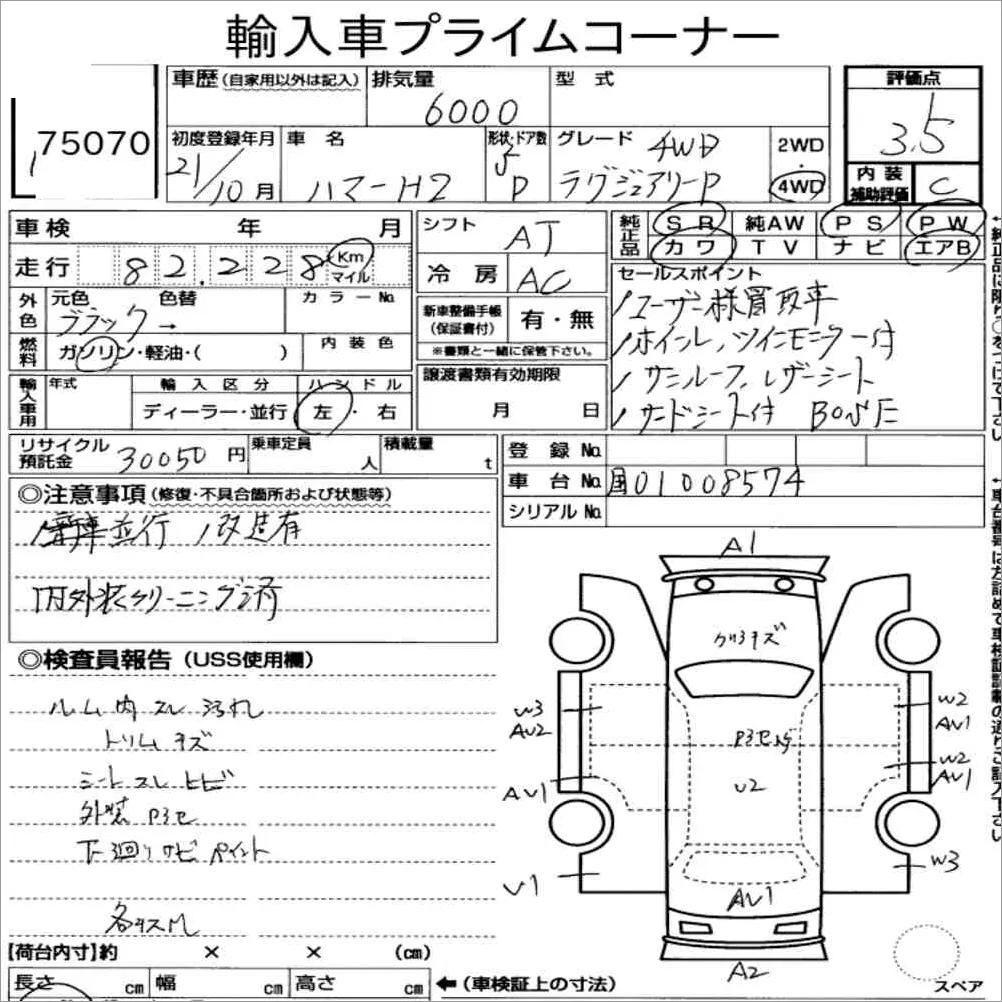 輸入車プライムコーナー
75070
車歴(自家用以外は記入)
排気量
6000
型式
評価点
3.5
初度登録年月
21/10月
車名
ハマーH2
形状・ドア数
5
D
グレード
4WD
ラグジュアリーP
2WD
・
4WD
内装
補助評価
C
車検 年 月
走行 82.228 Km
マイル
シフト
AT
冷房
AC
純正品
SR 純AW PS PW
カワ TV ナビ エアB
外色
元色 色替 カラーNo
ブラック→
燃料
ガソリン・軽油・( )
内装色
新車整備手帳
(保証書付)
有・無
※書類と一緒に保管下さい。
セールスポイント
/ユーザー様買取車
/ホイール,ツインモニター付
/サンルーフ,レザーシート
/サードシート付 BOSE
輸入車用
年式
輸入区分
ディーラー・並行
ハンドル
左・右
譲渡書類有効期限
月 日
リサイクル
預託金
30050円
乗車定員
人
積載量
t
登録No
車台No
国01008574
シリアルNo
◎注意事項(修復・不具合箇所および状態等)
/新車並行 /改造有
内外装クリーニング済
◎検査員報告(USS使用欄)
ルーム内スレ汚れ
トリムキズ
シートスレヒビ
外装
下廻りサビペイント
各キスM
A1
W3
AU2
AU1
U1
U2
W2
AU1
W2
AU1
W3
AU1
A2
スペア
【荷台内寸】約 × × (cm)
長さ cm 幅 cm 高さ cm
←(車検証上の寸法)